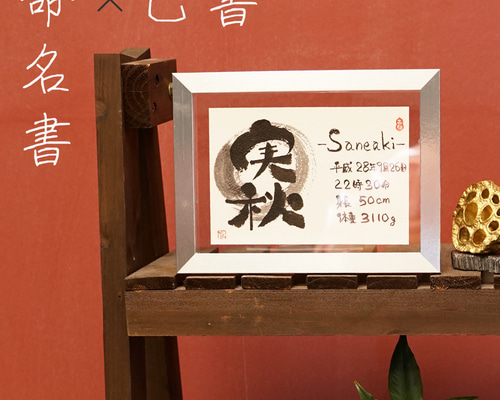 命名書
×
己書
実秋
-Saneaki-
平成28年9月26日
22時30分
身長 50cm
体重 3110g